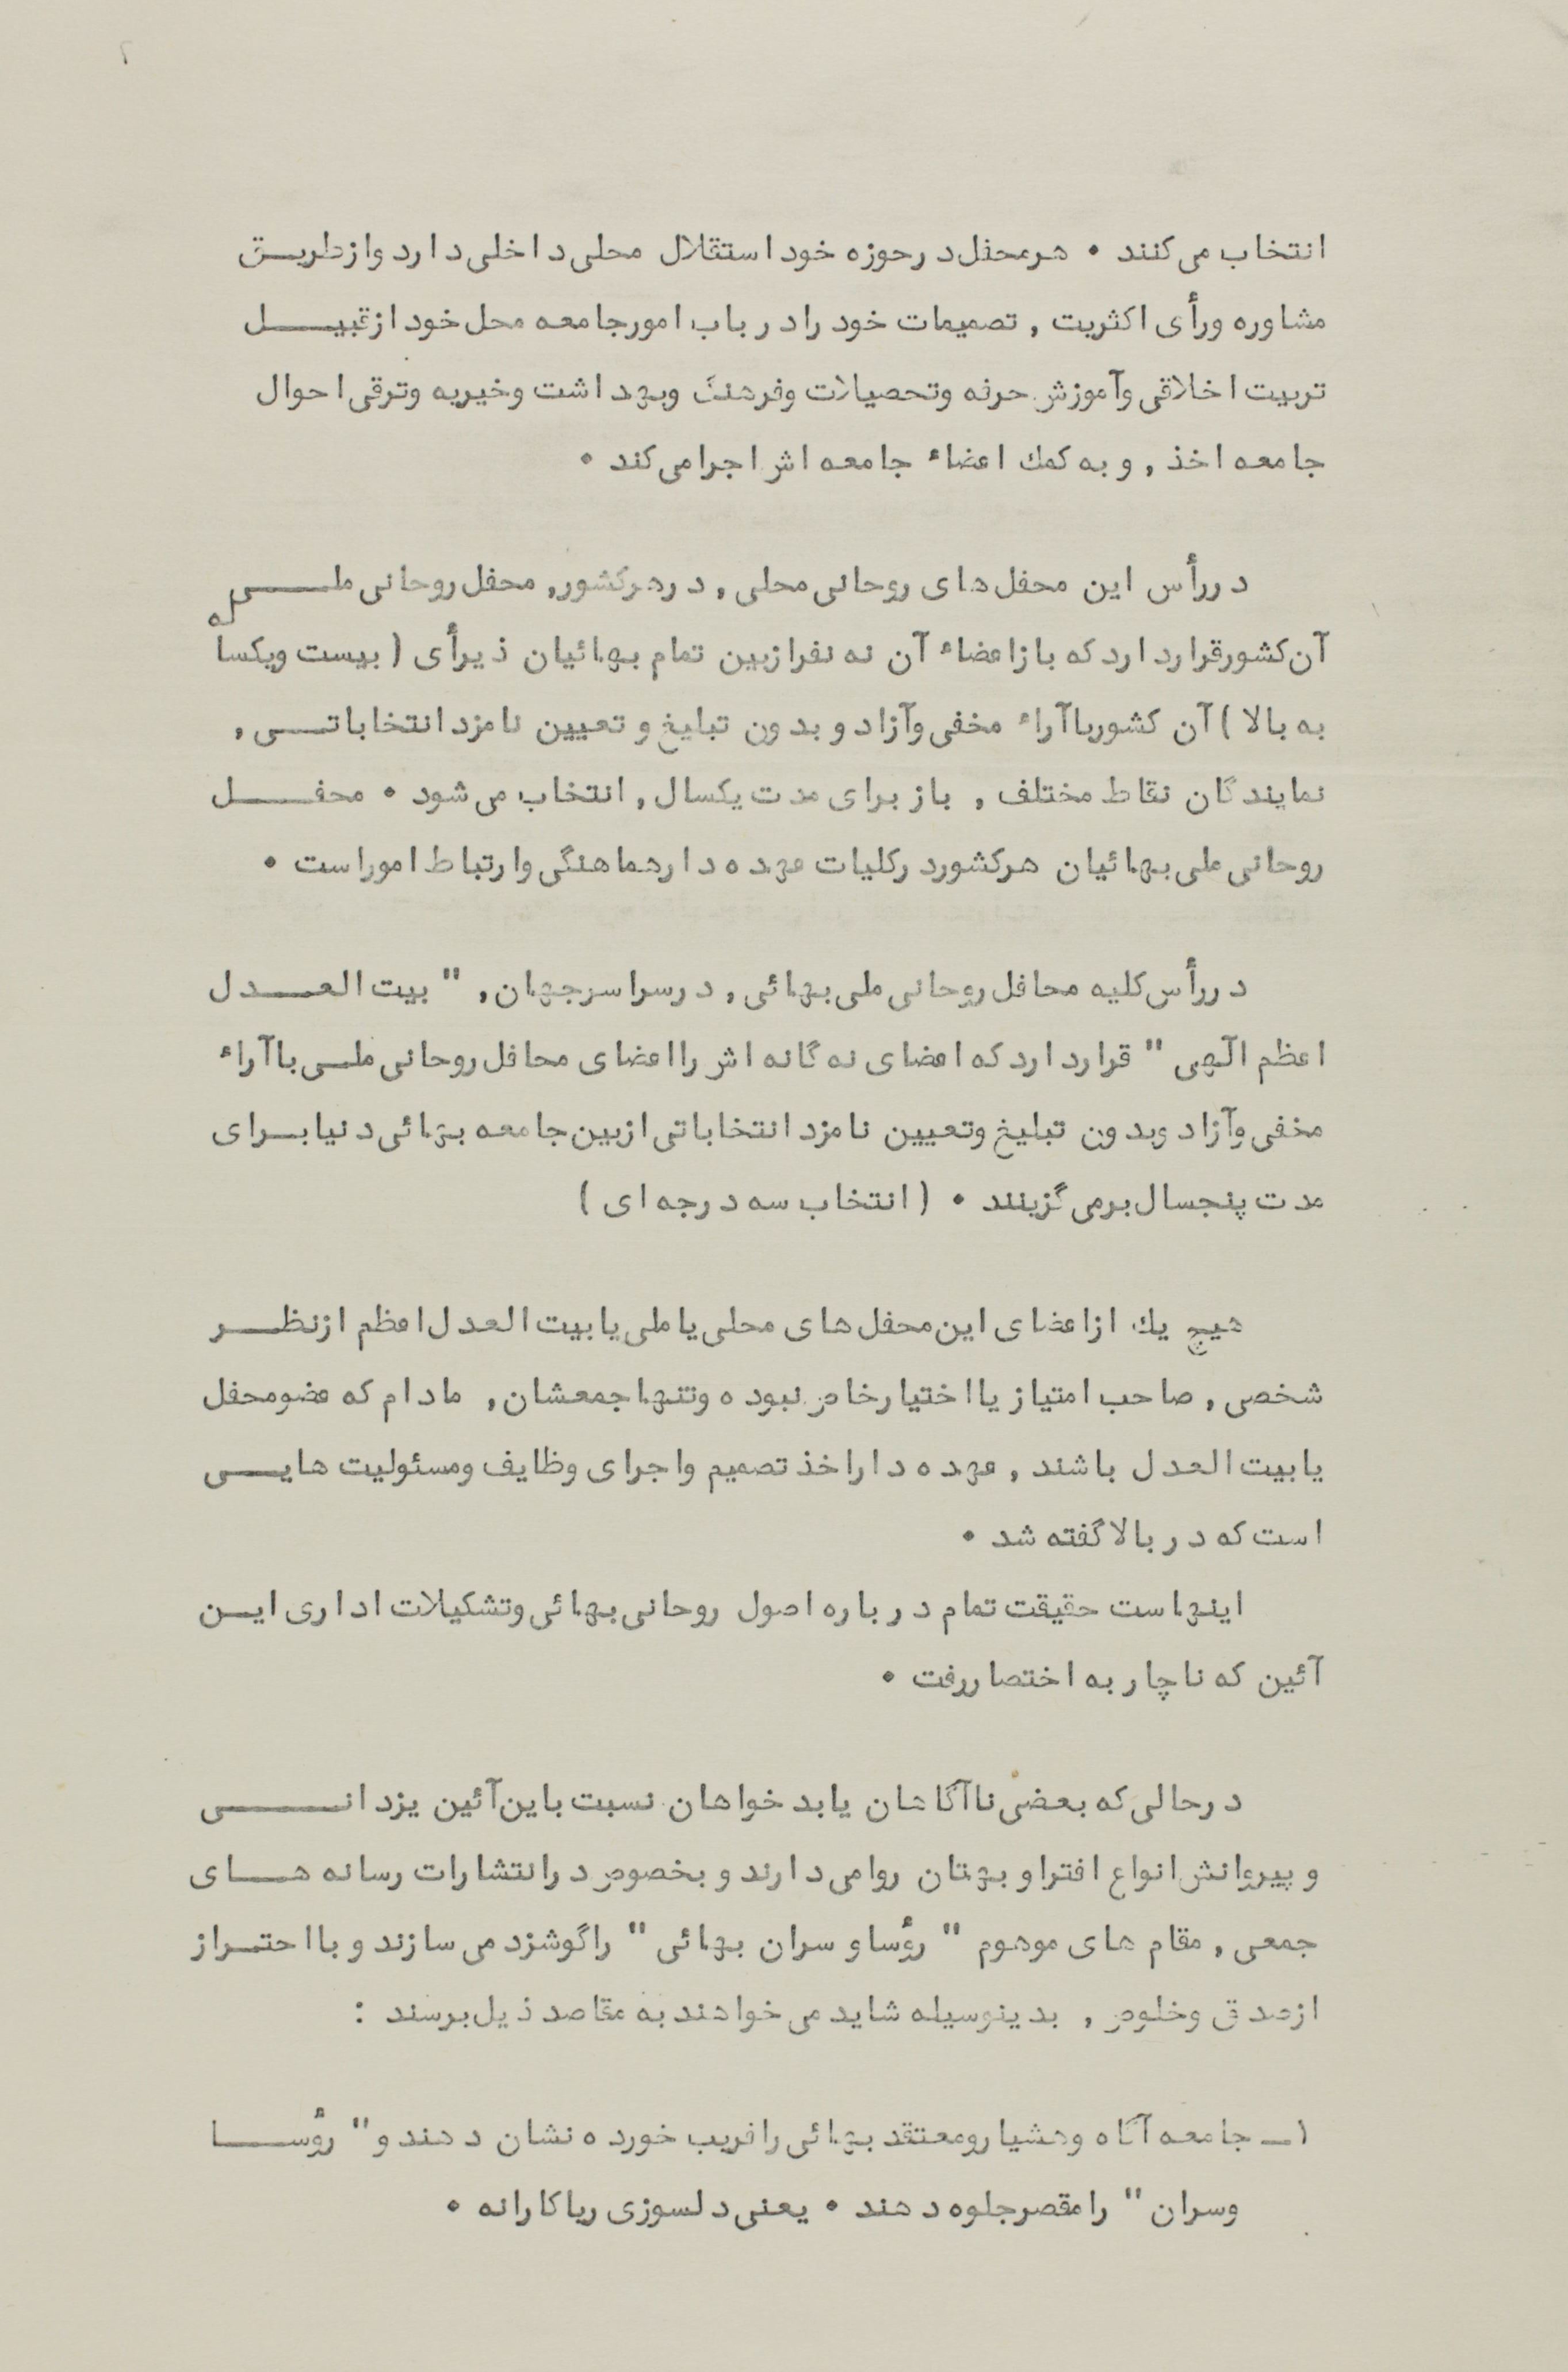 انتخاب می کنند • هرمحفل در حوزه خود استقلال محلی داخلی دارد واز طریق
مشاوره ورأی اکثریت , تصمیمات خود را در باب امور جامعه محل خود از قبیل
تربیت اخلاقی وآموزش حرفه وتحصیلات وفرهنگ وبهداشت وخیریه وترقی احوال
جامعه اخذ , و به کمك اعضاء جامعه اش اجرا می کند •
در رأس این محفل های روحانی محلی , در هر کشور, محفل روحانی ملی
آن کشور قرار دارد که باز اعضاء آن نه نفر از بین تمام بهائیان ذیرأی ( بیست ویکساله
به بالا ) آن کشور با آراء مخفی وآزاد و بدون تبلیغ و تعیین نامزد انتخاباتی ,
نمایندگان نقاط مختلف , باز برای مدت یکسال , انتخاب می شود • محفل
روحانی ملی بهائیان هر کشور در کلیات عهده دار هماهنگی وارتباط امور است •
در رأس کلیه محافل روحانی ملی بهائی , در سراسر جهان , " بیت العدل
اعظم الهی " قرار دارد که اعضای نه گانه اش را اعضای محافل روحانی ملی با آراء
مخفی وآزاد وبدون تبلیغ وتعیین نامزد انتخاباتی از بین جامعه بهائی دنیا برای
مدت پنجسال بر می گزینند • ( انتخاب سه درجه ای )
هیچ یك از اعضای این محفل های محلی یا ملی یا بیت العدل اعظم از نظر
شخصی , صاحب امتیاز یا اختیار خاص نبوده وتنها جمعشان , مادام که عضو محفل
یا بیت العدل باشند , عهده دار اخذ تصمیم واجرای وظایف ومسئولیت هایی
است که در بالا گفته شد •
اینهاست حقیقت تمام در باره اصول روحانی بهائی وتشکیلات اداری این
آئین که ناچار به اختصار رفت •
در حالی که بعضی ناآگاهان یا بد خواهان نسبت باین آئین یزدانی
و پیروانش انواع افترا و بهتان روا می دارند و بخصوص در انتشارات رسانه های
جمعی , مقام های موهوم " رؤسا و سران بهائی " را گوشزد می سازند و با احتراز
از صدق وخلوص , بدینوسیله شاید می خواهند به مقاصد ذیل برسند :
۱ـ جامعه آگاه وهشیار ومعتقد بهائی را فریب خورده نشان دهند و " رؤسا
وسران " را مقصر جلوه دهند • یعنی دلسوزی ریاکارانه •